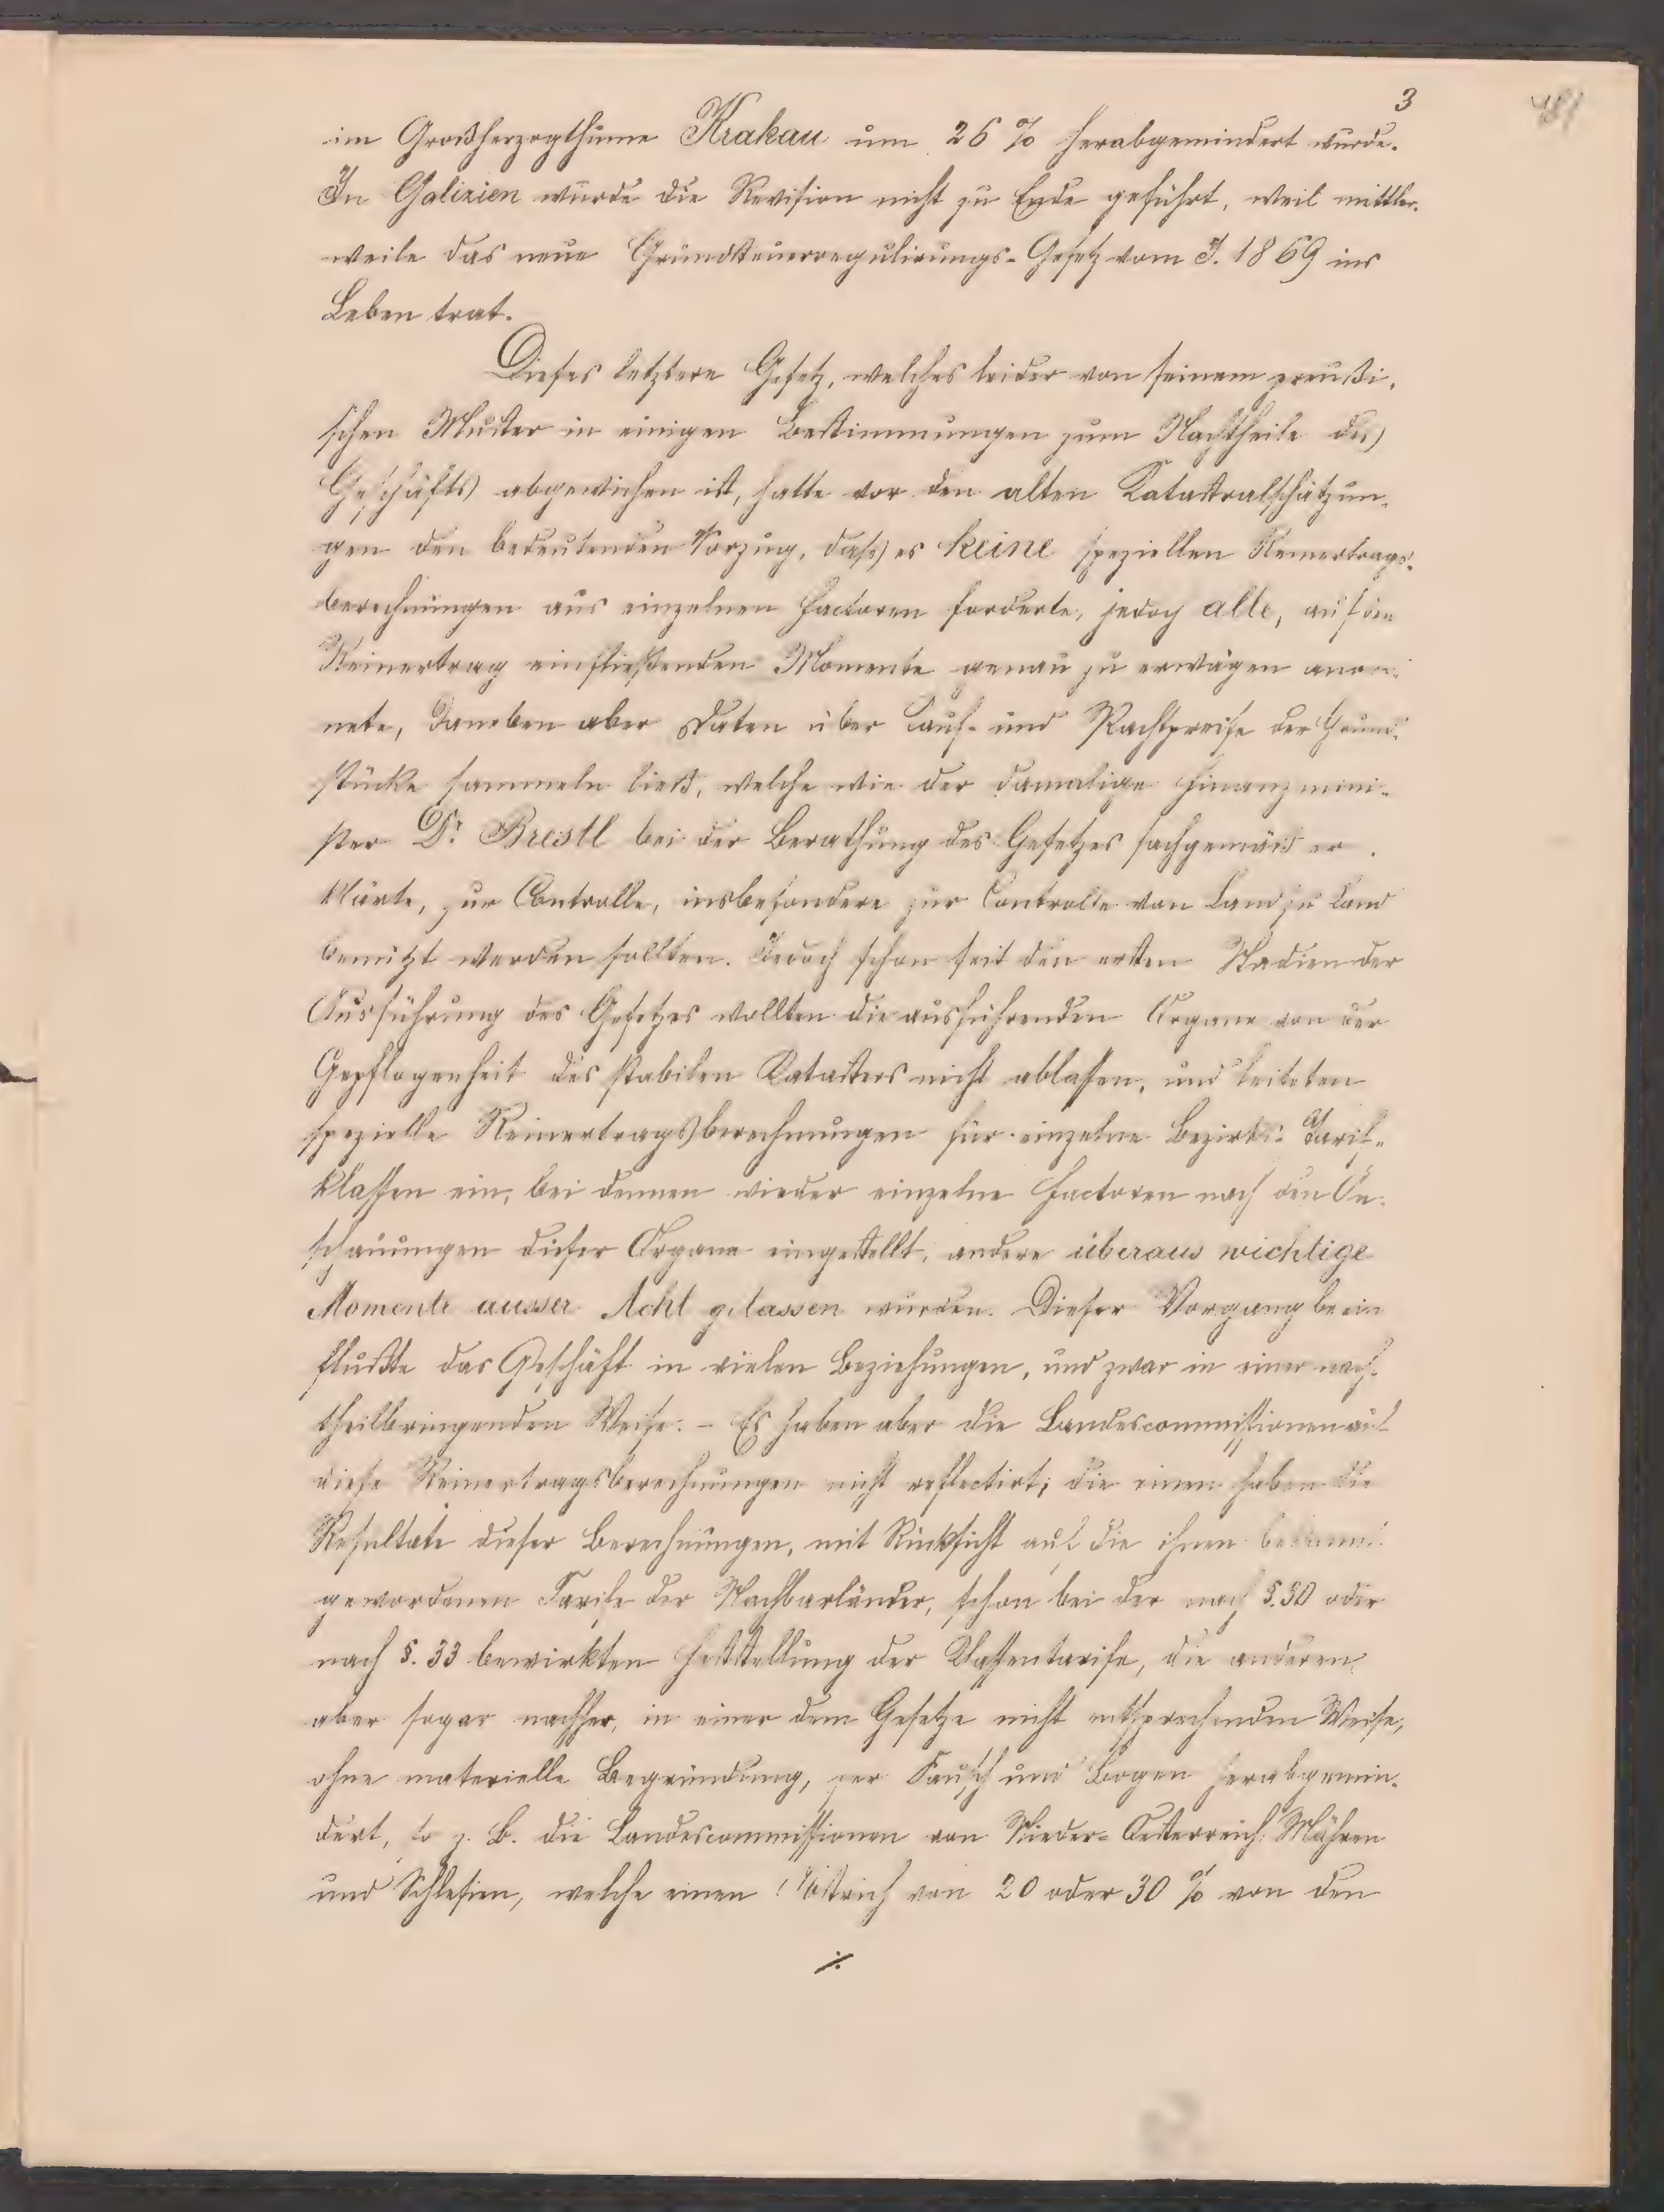 3
im Großherzogthume Krakau um 26 % herabgemindert wurde.
In Galizien wurde die Revision nicht zu Ende geführt, weil mittler-
weile das neue Grundsteuerregulirungs-Gesetz vom J. 1869 ins
Leben trat.
Dieses letztere Gesetz, welches leider von seinem preußi-
schen Muster in einigen Bestimmungen zum Nachtheile des
Geschäfts abgewichen ist, hatte vor den alten Katastralschätzun-
gen den bedeutenden Vorzug, dass es keine speziellen Reinertrags-
berechnungen aus einzelnen Factoren forderte, jedoch alle, auf den
Reinertrag einfließenden Momente genau zu erwägen anord-
nete, daneben aber Daten über Kauf- und Pachtpreise der Grund-
stücke sammeln ließ, welche wie der damalige Finanzmini-
ster Dr. Brestl bei der Berathung des Gesetzes sachgemäß er-
klärte, zur Controlle, insbesondere zur Controlle von Land zu Land
benützt werden sollten. Jedoch schon seit den ersten Stadien der
Ausführung des Gesetzes wollten die ausführenden Organe von der
Gepflogenheit des stabilen Katasters nicht ablassen, und leiteten
spezielle Reinertragsberechnungen für einzelne Bezirks- Tarif-
klassen ein, bei dennen wieder einzelne Factoren nach den An-
schauungen dieser Organe eingestellt, andere überaus wichtige
Momente ausser Acht gelassen wurden. Dieser Vorgang beein
flußte das Geschäft in vielen Beziehungen, und zwar in einer nach-
theilbringenden Weise. – Es haben aber die Landescommissionen auf
diese Reinertragsberechnungen nicht reflectirt; die einen haben die
Resultate dieser Berechnungen, mit Rücksicht auf die ihnen bekannt
gewordenen Tarife der Nachbarländer, schon bei der nach §. 30 oder
nach §. 33 bewirkten Feststellung der Classentarife, die anderen
aber sogar nachher, in einer dem Gesetze nicht entsprechenden Weise,
ohne materielle Begründung, per Bausch und Bogen herabgemin-
dert, so z. B. die Landescommissionen von Nieder-Oesterreich, Mähren
und Schlesien, welche einen Abstrich von 20 oder 30 % von den
./.